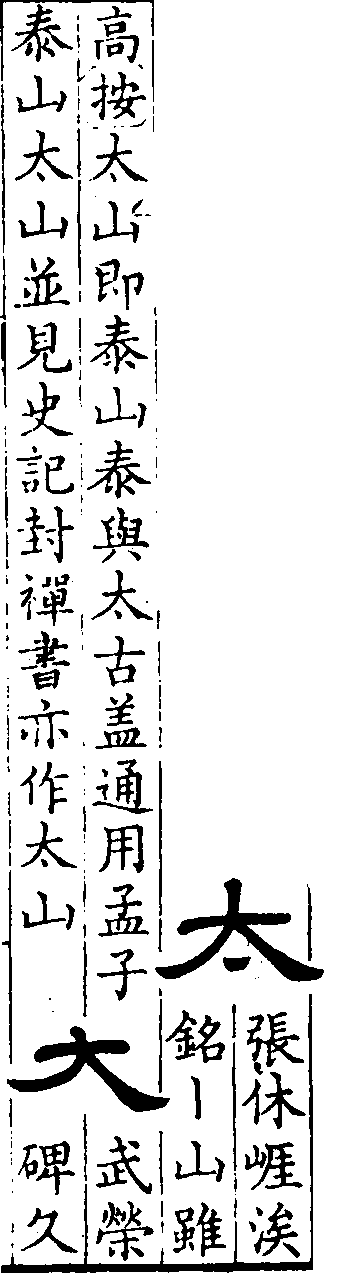 太
張休崕涘
銘丨山雖
高按太山即泰山泰與太古盖通用孟子
泰山太山並見史記封禪書亦作太山
大
武榮
碑久